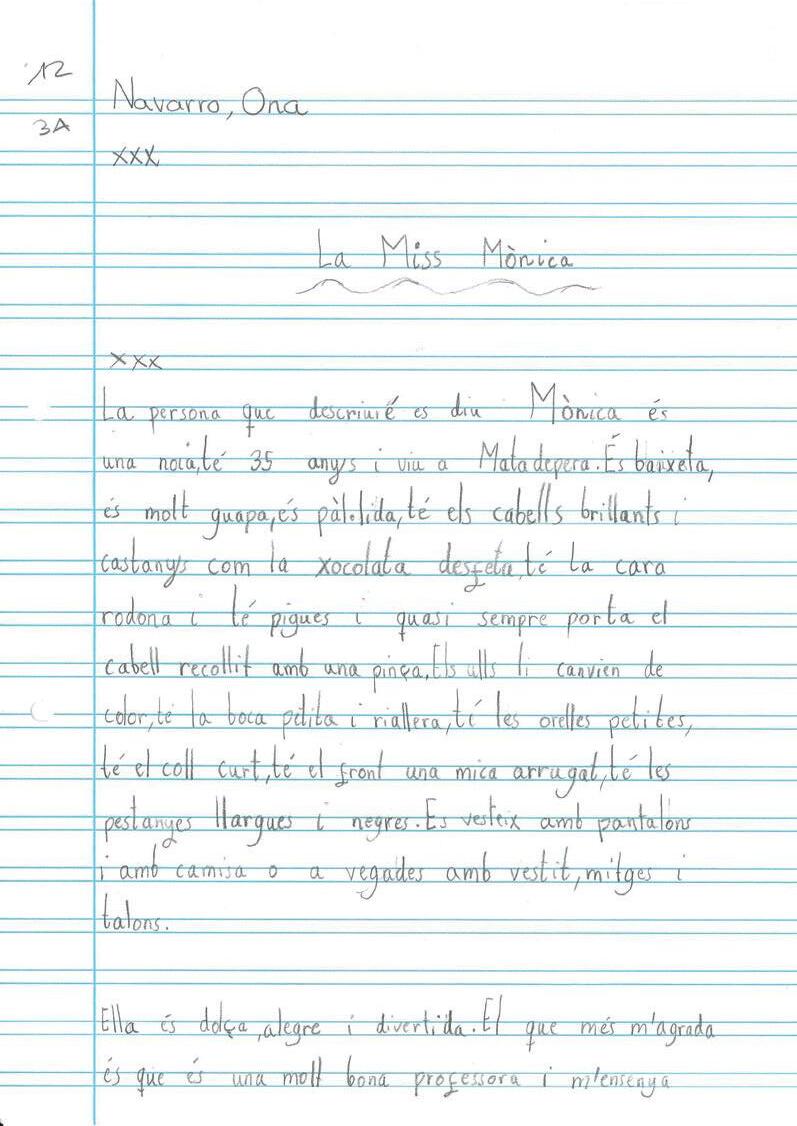 12
Navarro, Ona
3A
xxx
La Miss Mònica
xxx
La persona que descriuré es diu Mònica és
una noia,té 35 anys i viu a Matadepera.És baixeta,
és molt guapa,és pàl·lida,té els cabells brillants i
castanys com la xocolata desfeta,té la cara
rodona i té pigues i quasi sempre porta el
cabell recollit amb una pinça,Els ulls li canvien de
color,té la boca petita i riallera,té les orelles petites,
té el coll curt,té el front una mica arrugat,té les
pestanyes llargues i negres.Es vesteix amb pantalons
i amb camisa o a vegades amb vestit,mitges i
talons.
Ella és dolça,alegre i divertida.El que més m'agrada
és que és una molt bona professora i m'ensenya